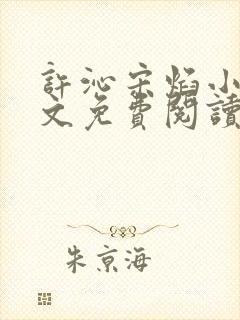 許沁宋焰小
文免費閱讀
朱京海